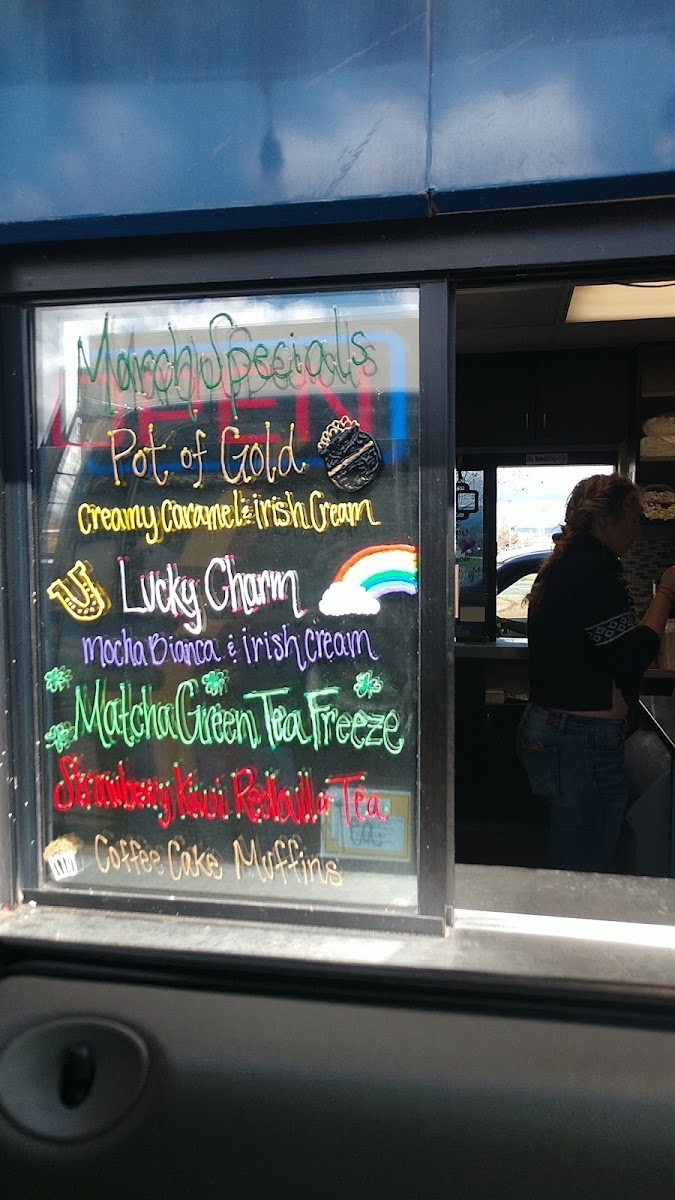 March Specials
OPEN
Pot of Gold
Creamy Caramel & Irish Cream
Lucky Charm
Mocha Bianca & Irish Cream
Matcha Green Tea Freeze
Strawberry Kiwi Redbull or Tea
Coffee Cake Muffins